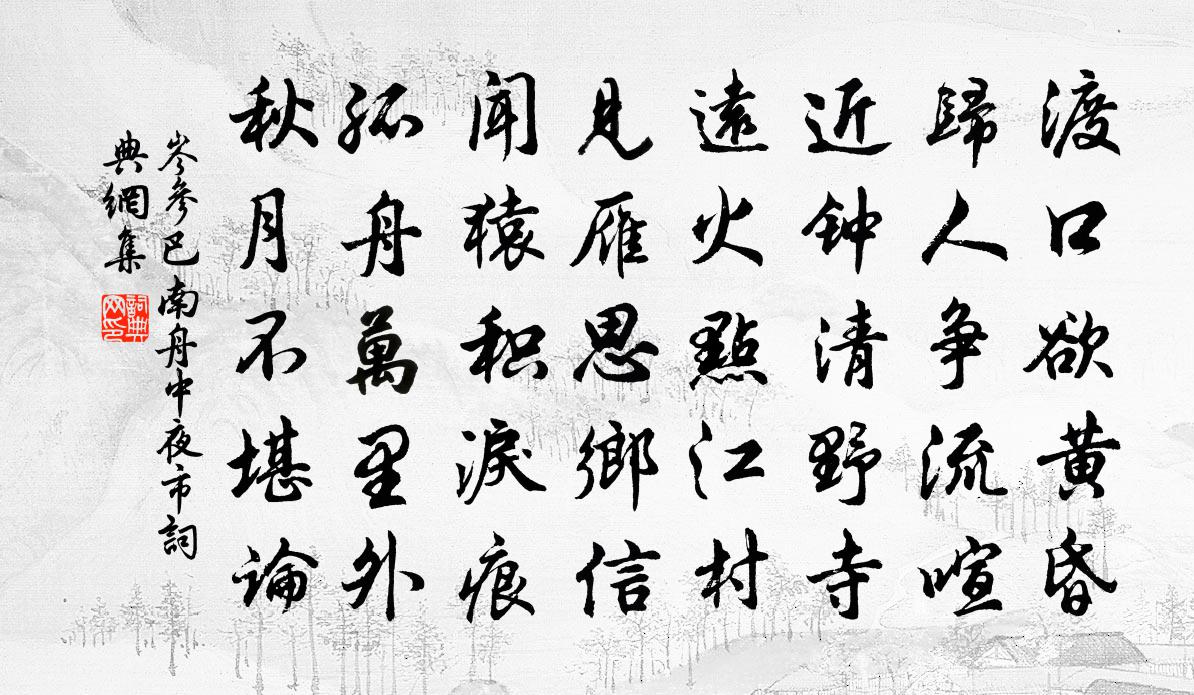 渡口欲黄昏
歸人争流喧
近钟清野寺
遠火點江村
見雁思鄉信
聞猿积淚痕
孤舟萬里外
秋月不堪論
岑參巴南舟中夜市詞
典網集
詞典
网印